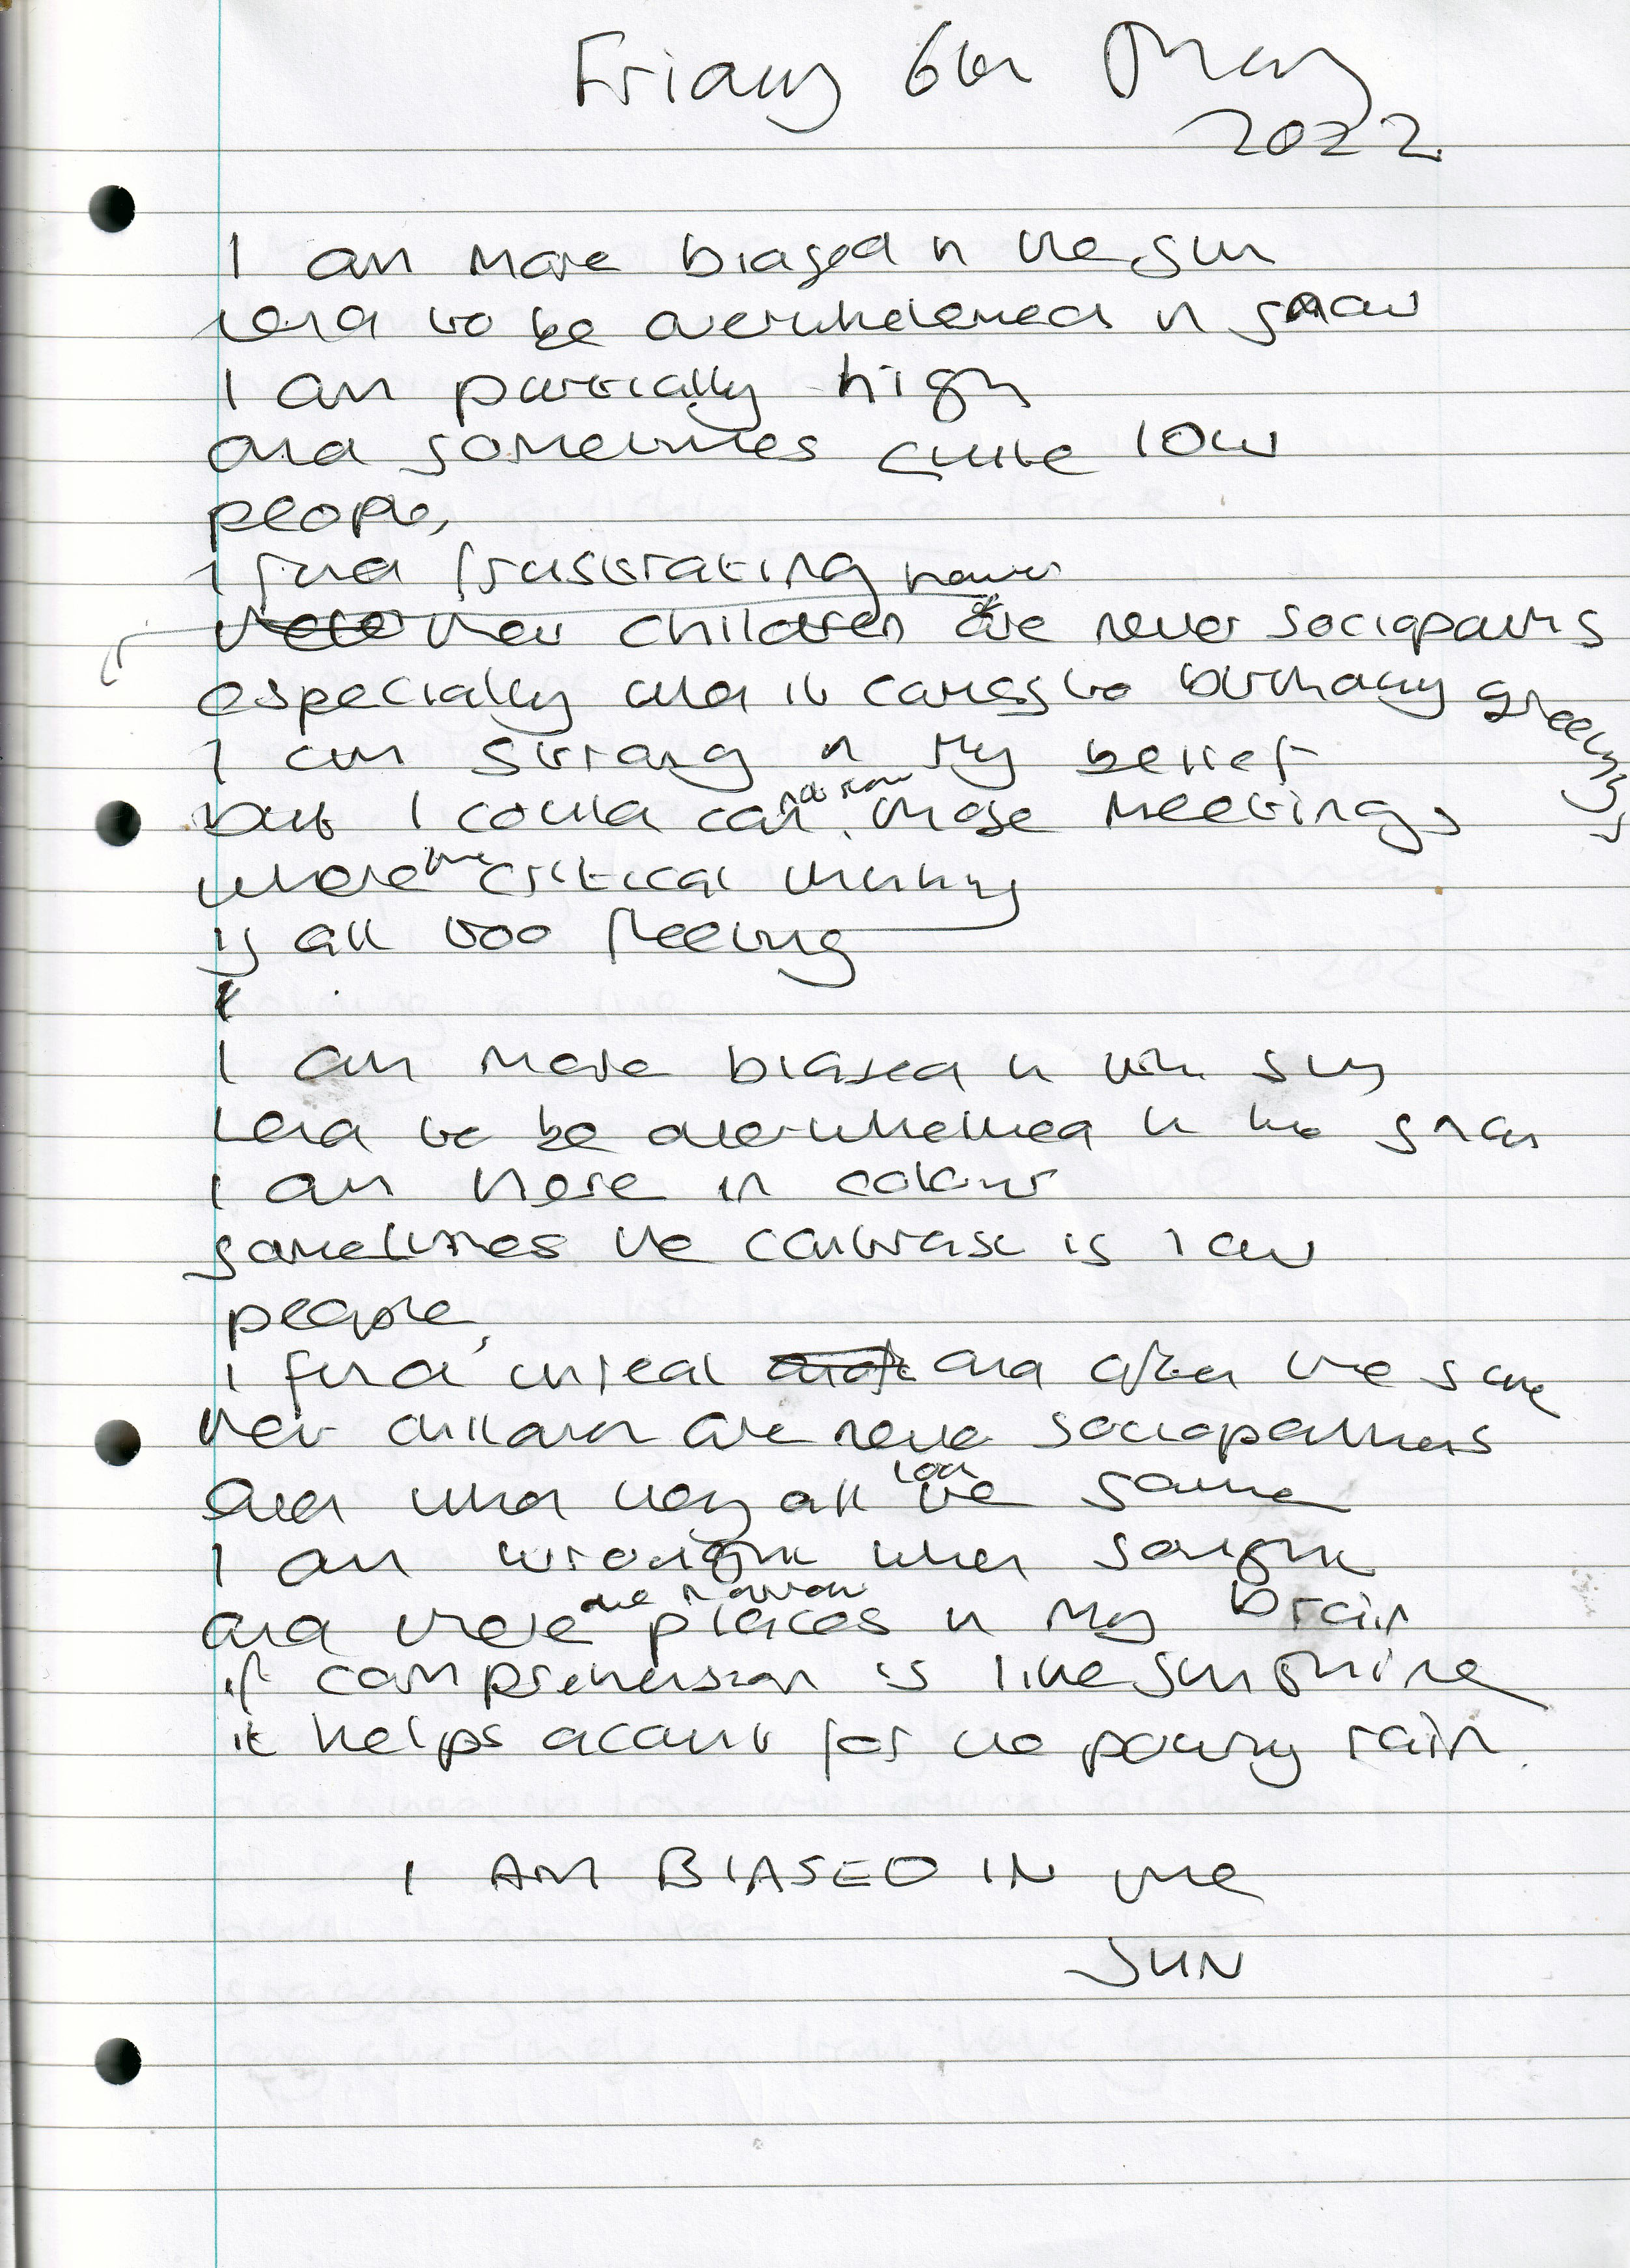 Friday 6th May
2022
I am more biased in the sun
tend to be overwhelemed in snow
I am partially high
and sometimes quite low
people,
I find frustrating
their children are never sociopaths
especially when it comes to birthday greetings
I am strong in my belief
but I could can those meetings
where the critical thinking
is all too fleeting
I am more biased in the sun
tend to be overwhelmed in the snow
I am here in colour
sometimes the contrast is low
people,
I find unreal and often the same
their children are never sociopaths
and when they all look the same
I am wrought when sought
and there are narrow places in my brain
if comprehension is like sunshine
it helps account for the pouring rain.
I AM BIASED IN the
SUN